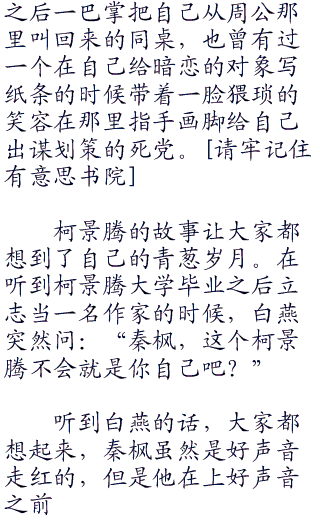 之后一巴掌把自己从周公那
里叫回来的同桌，也曾有过
一个在自己给暗恋的对象写
纸条的时候带着一脸猥琐的
笑容在那里指手画脚给自己
出谋划策的死党。[请牢记住
有意思书院]
柯景腾的故事让大家都
想到了自己的青葱岁月。在
听到柯景腾大学毕业之后立
志当一名作家的时候，白燕
突然问：“秦枫，这个柯景
腾不会就是你自己吧？”
听到白燕的话，大家都
想起来，秦枫虽然是好声音
走红的，但是他在上好声音
之前